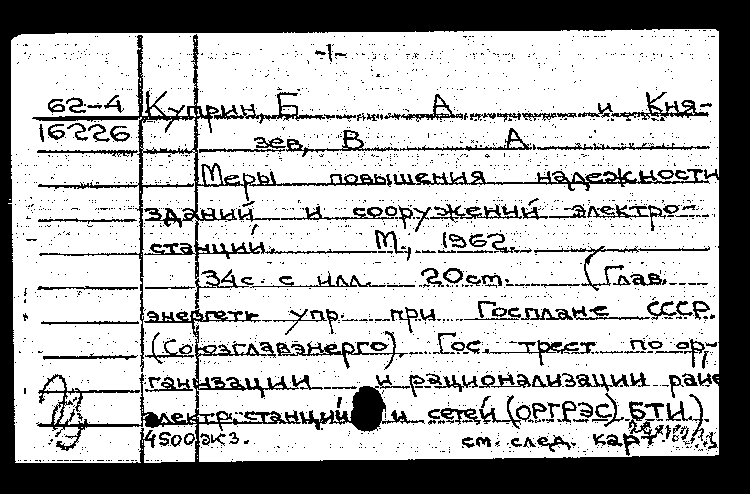 -1-
62-4 Куприн, Б А и Кня-
16226 зев, В А
Меры повышения надежности
зданий и сооружений электро-
станций. М., 1962.
34с. с илл. 20см. (Глав.
энергет. упр. при Госплане СССР.
(Союзглавэнерго). Гос. трест по ор-
ганизации и рационализации райо
электр. станций и сетей (ОРГРЭС). БТИ.)
4500экз. см. след. карт